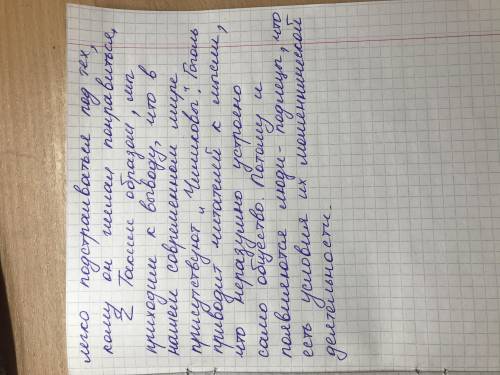 легко подстраиваться под тех,
кому он желал понравиться.
Z Таким образом, мы
приходим к выводу, что в
нашем современном мире
присутствуют "Чичиковы". Гоголь
приводит читателей к мысли,
что неразумно устроено
само общество. Потому и
появляются люди-подлецы, что
есть условия их мошеннической
деятельности.